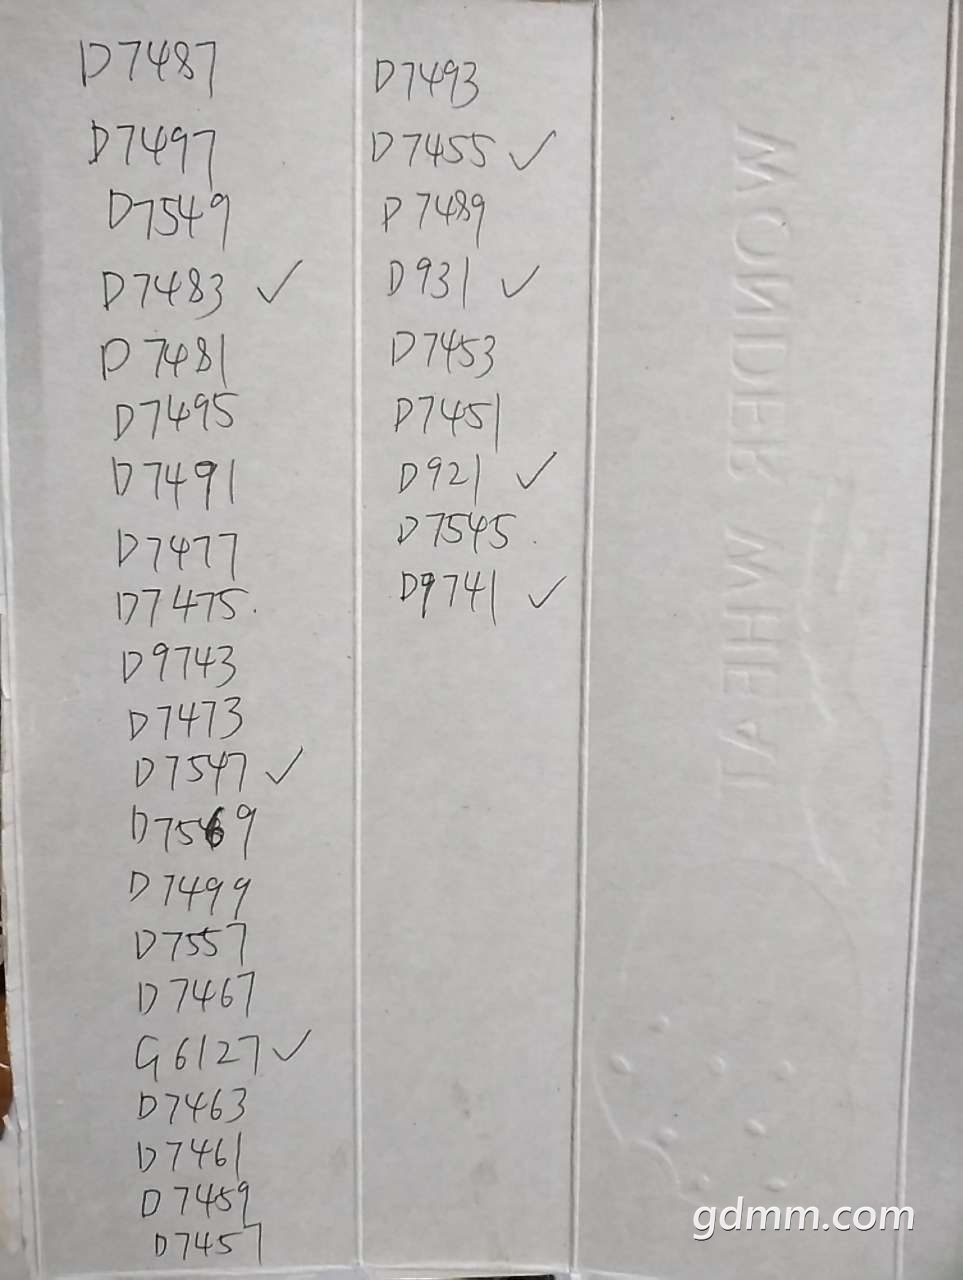 D7487
D7497
D7549
D7483 ✓
D7481
D7495
D7491
D7477
D7475.
D9743
D7473
D7547 ✓
D7569
D7499
D7557
D7467
G6127 ✓
D7463
D7461
D7459
D7457
D7493
D7455 ✓
D7489
D931 ✓
D7453
D7451
D921 ✓
D7545.
D9741 ✓
WONDER WHEAT
gdmm.com